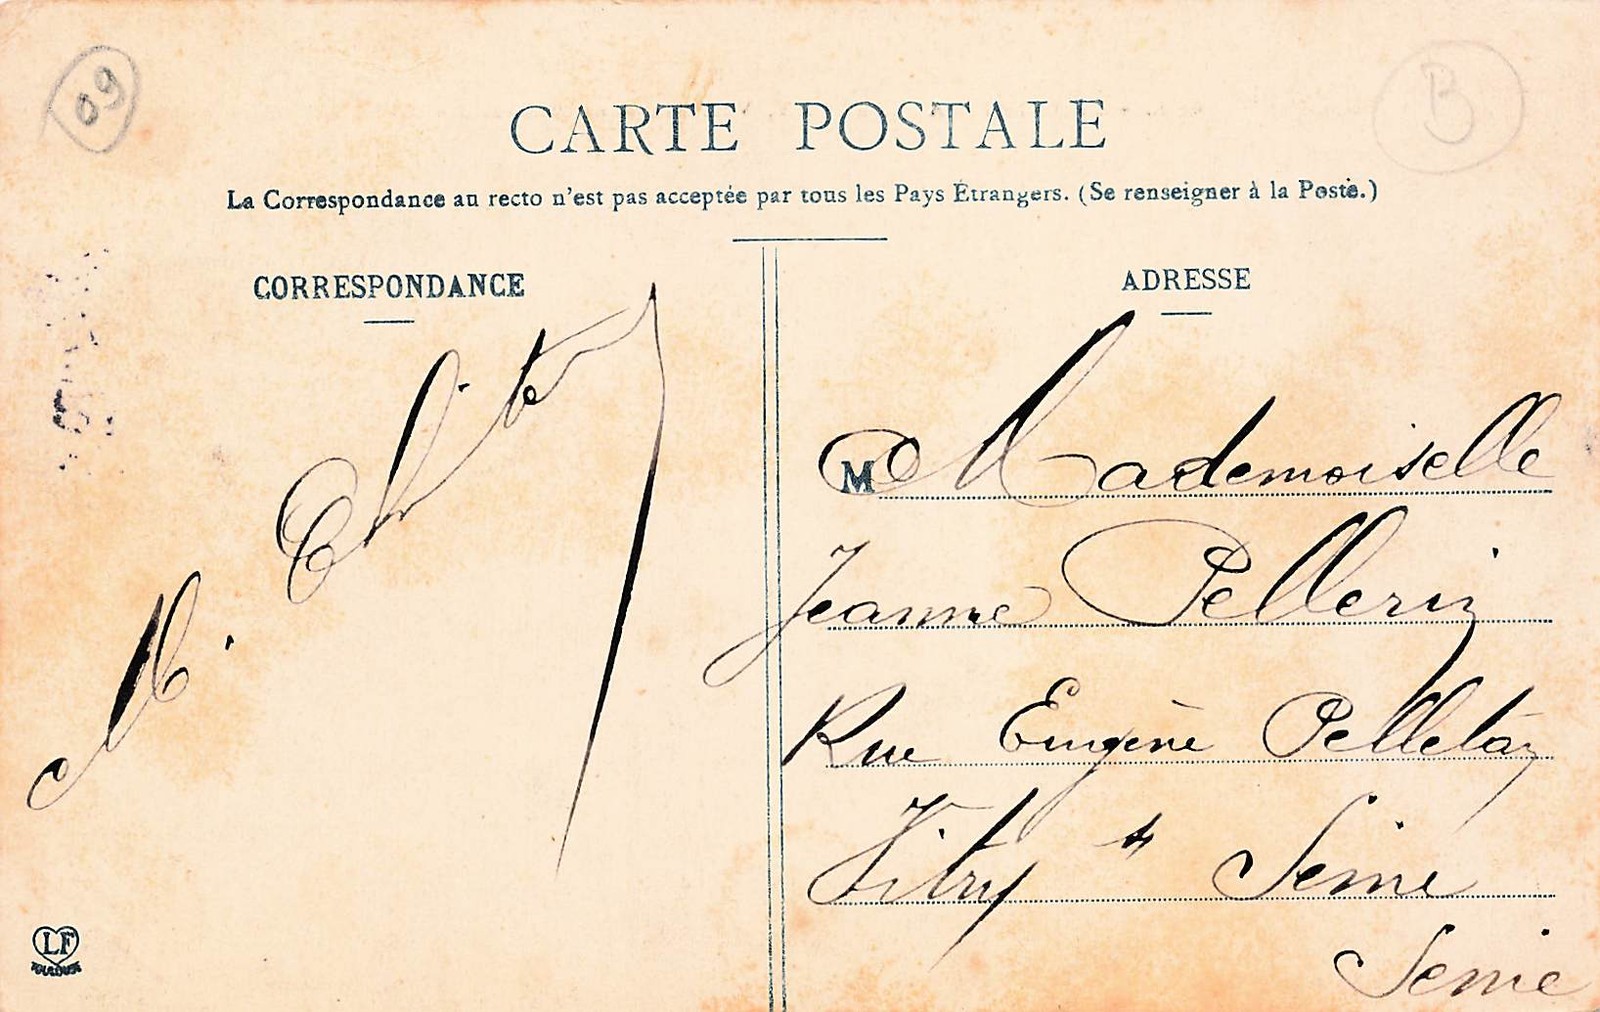 09
B
CARTE POSTALE
La Correspondance au recto n'est pas acceptée par tous les Pays Étrangers. (Se renseigner à la Poste.)
CORRESPONDANCE
ADRESSE
M Mademoiselle
Jeanne Pellerin
Rue Eugène Pelletan
Vitry s/ Seine
Seine
LF
TOULOUSE